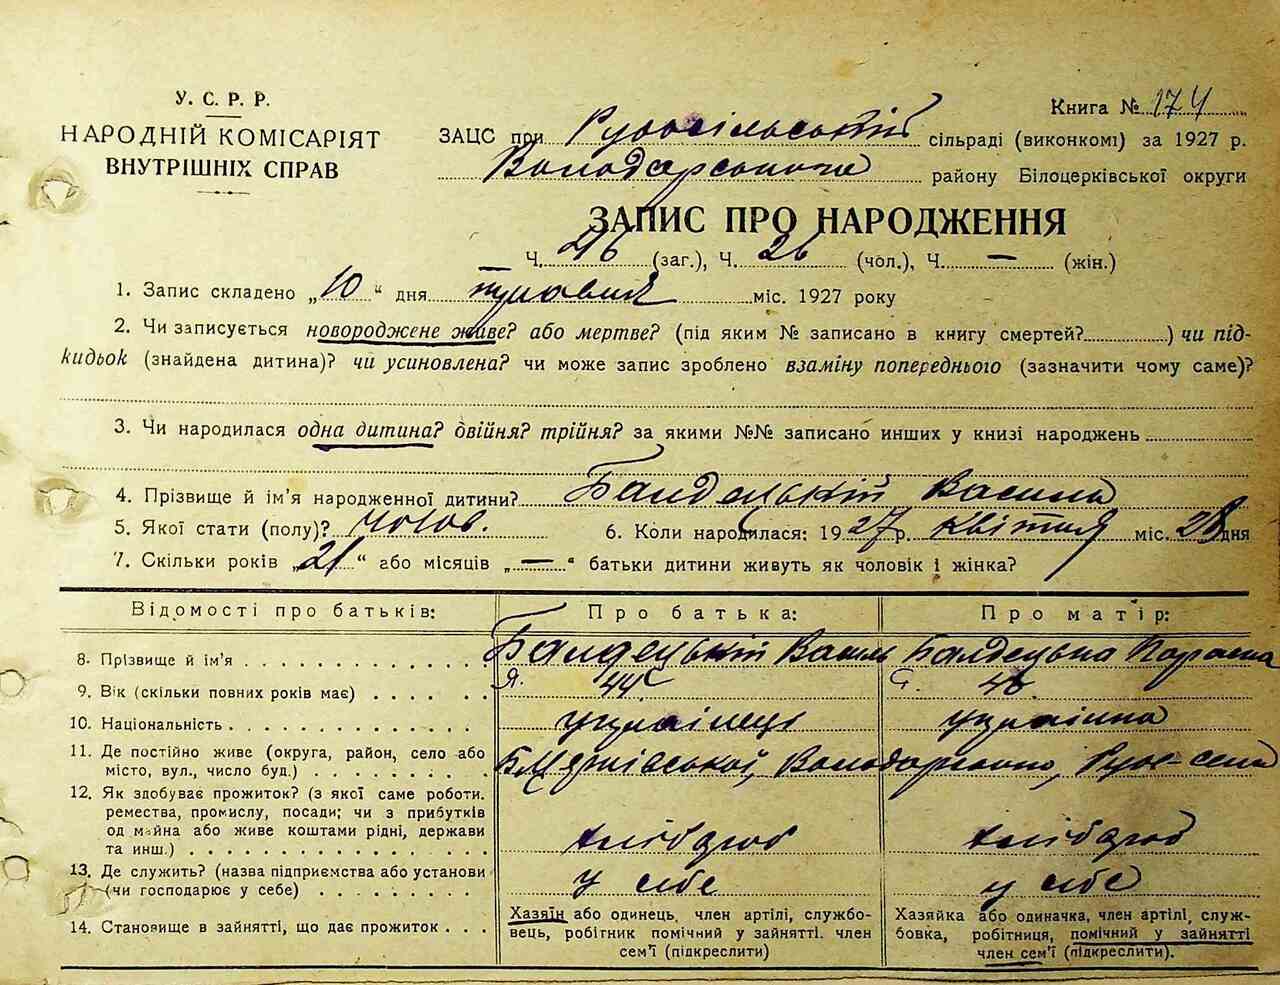 У. С. Р. Р.
НАРОДНІЙ КОМІСАРІЯТ
ВНУТРІШНІХ СПРАВ
Книга № 174
ЗАЦС при сільраді (виконкомі) за 1927 р.
Володарського району Білоцерківської округи
ЗАПИС ПРО НАРОДЖЕННЯ
Ч. 46 (заг.), Ч. 26 (чол.), Ч. — (жін.)
1. Запис складено „10“ дня травня міс. 1927 року
2. Чи записується новороджене живе? або мертве? (під яким № записано в книгу смертей?) чи під-
кидьок (знайдена дитина)? чи усиновлена? чи може запис зроблено взаміну попереднього (зазначити чому саме)?
3. Чи народилася одна дитина? двійня? трійня? за якими №№ записано инших у книзі народжень
4. Прізвище й ім'я народженної дитини? Балдецький Василь
5. Якої стати (полу)? чолов. 6. Коли народилася: 1927 р. квітня міс. 28 дня
7. Скільки років „21“ або місяців „—“ батьки дитини живуть як чоловік і жінка?
Відомості про батьків: Про батька: Про матір:
8. Прізвище й ім'я Балдецький Василь Балдецька Параска
9. Вік (скільки повних років має) 44
10. Національність українець українка
11. Де постійно живе (округа, район, село або
місто, вул., число буд.) Володарського,
12. Як здобуває прожиток? (з якої саме роботи.
ремества, промислу, посади; чи з прибутків
од майна або живе коштами рідні, держави
та инш.) хлібороб хлібороб
13. Де служить? (назва підприємства або установи
(чи господарює у себе) у себе у себе
14. Становище в зайнятті, що дає прожиток
Хазяїн або одинець, член артілі, службо-
вець, робітник помічний у зайнятті. член
сем'ї (підкреслити)
Хазяйка або одиначка, член артілі, служ-
бовка, робітниця, помічний у зайнятті
член сем'ї (підкреслити).